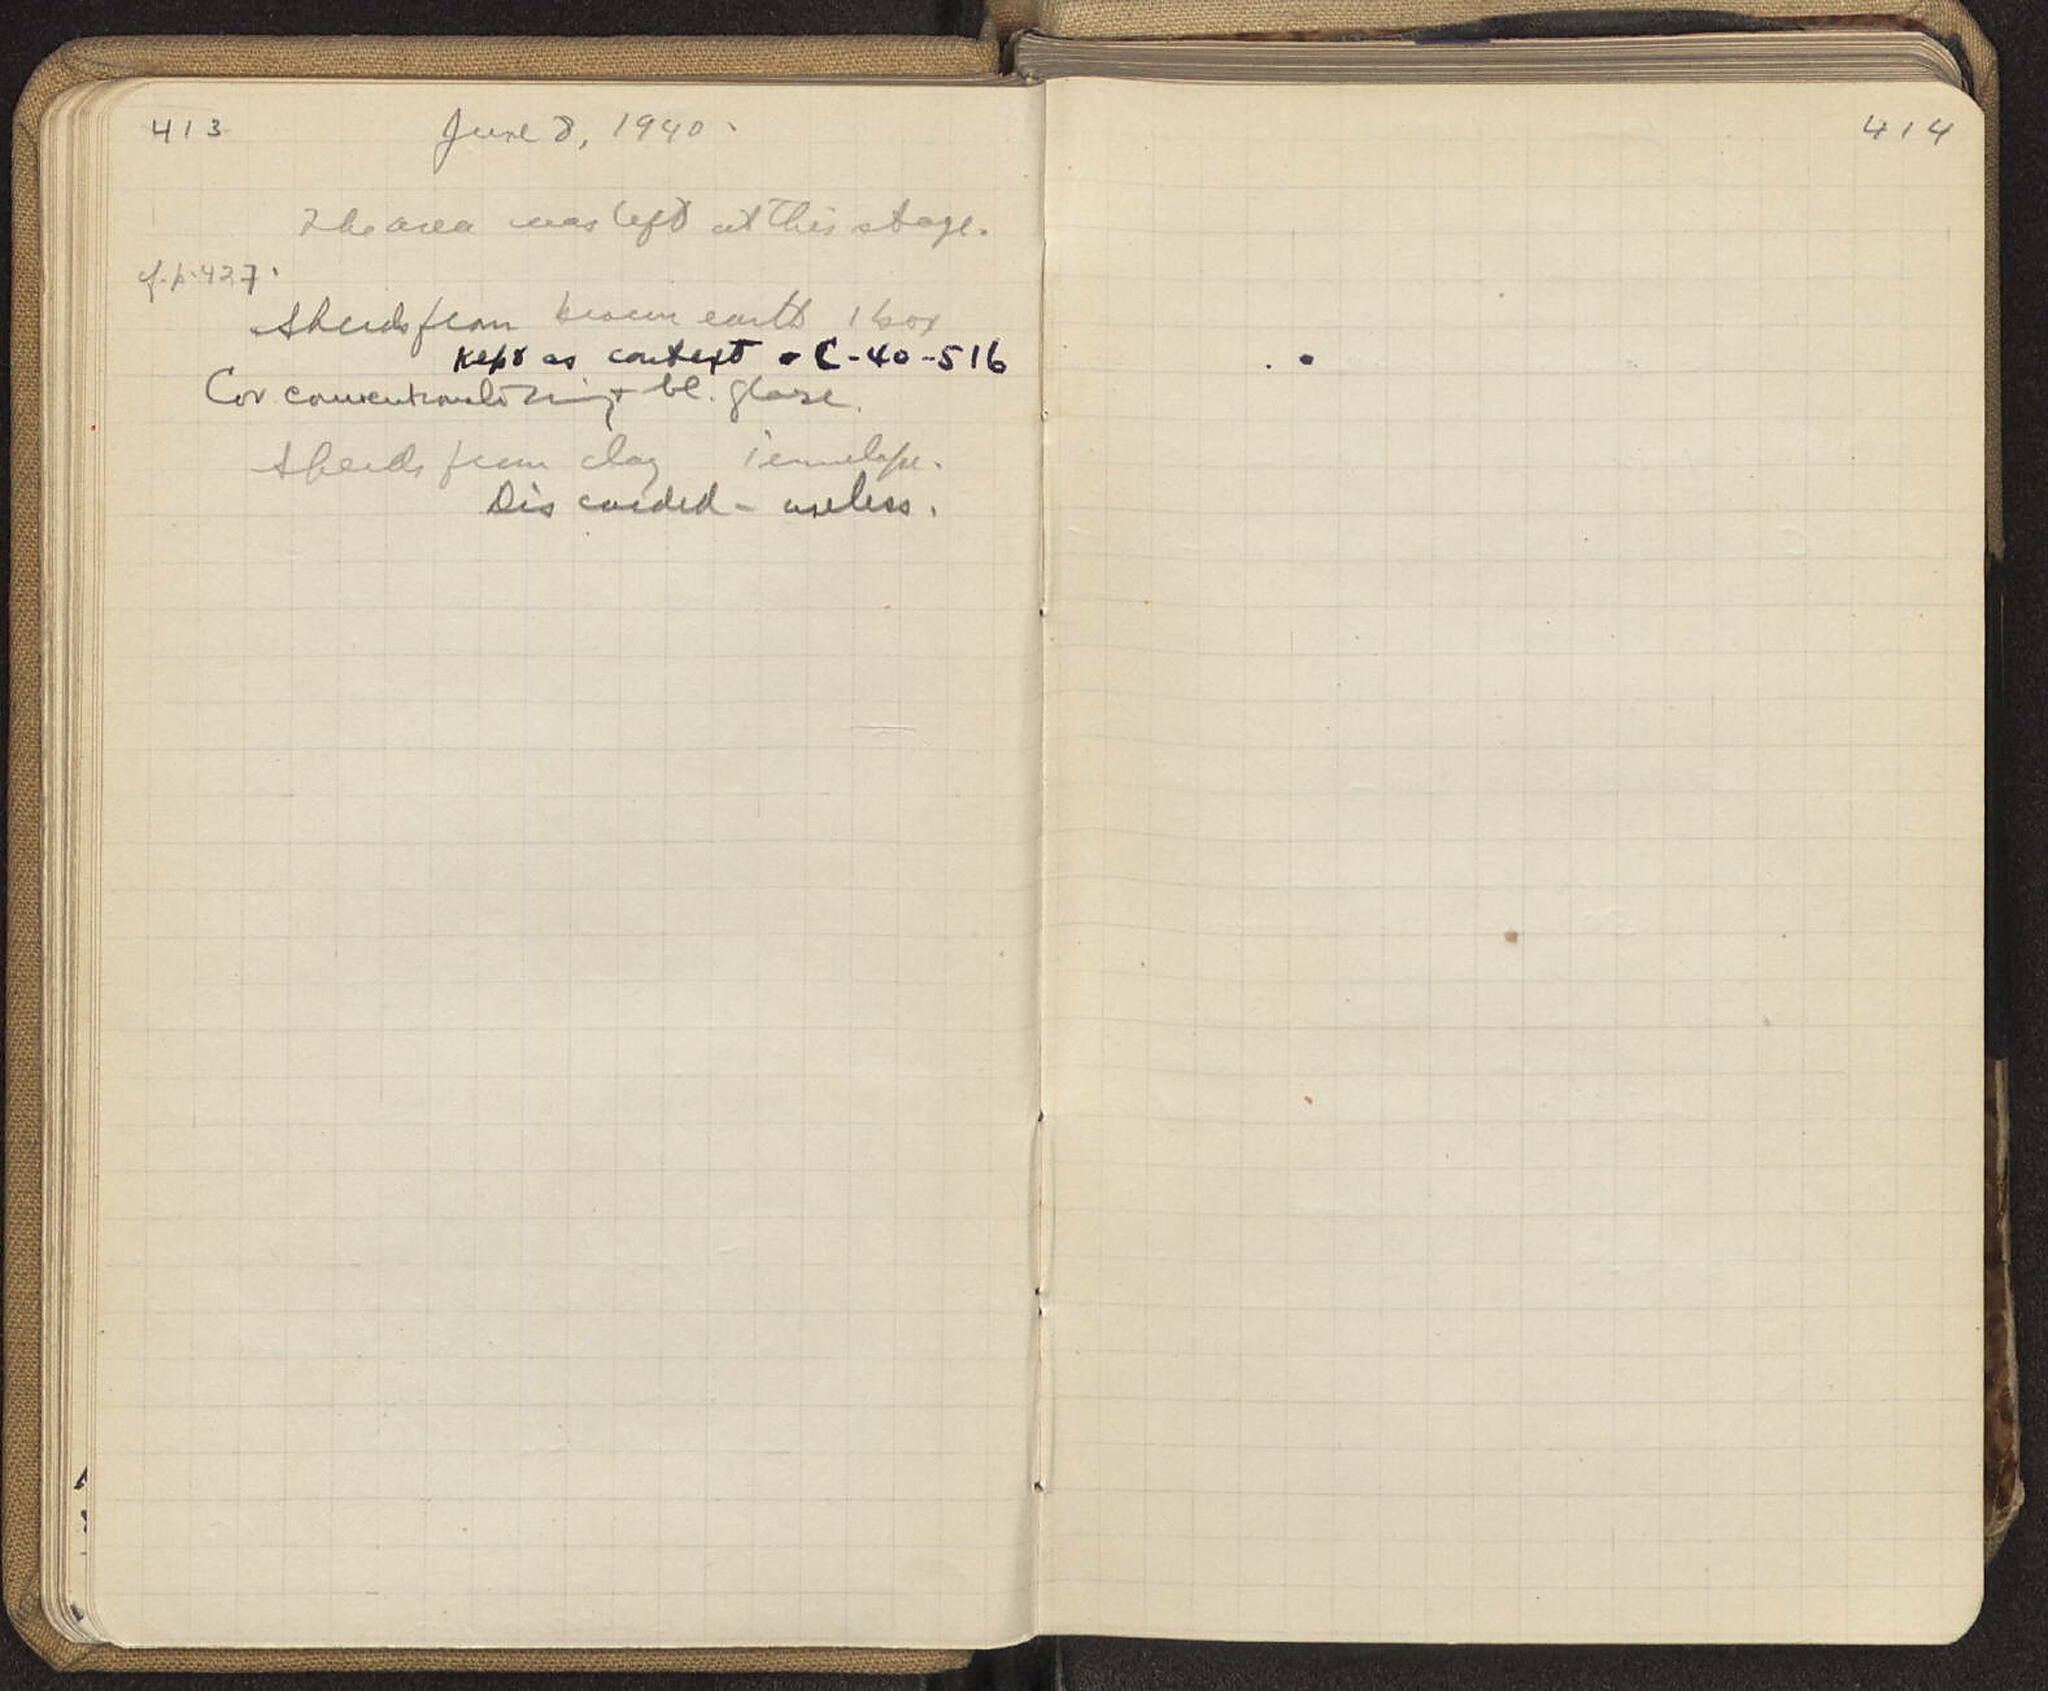 413
June 8, 1940.
The area was left at this stage.
cf. p. 427.
Sherds from brown earth 1 box
Kept as context • C-40-516
Cor. conventionalizing + bl. glaze.
Sherds from clay 1 envelope.
Discarded - useless.
414